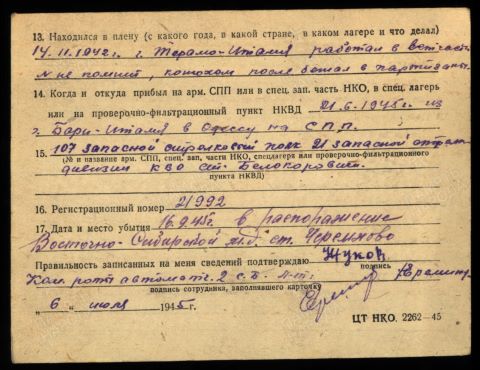 13. Находился в плену (с какого года, в какой стране, в каком лагере и что делал)
14.11.1942 г. г. Терамо-Италия работал в
№ не помнит, конюхом после бежал в партизаны.
14. Когда и откуда прибыл на арм. СПП или в спец. зап. часть НКО, в спец. лагерь
или на проверочно-фильтрационный пункт НКВД 21.6.1945г. из
г. Бари-Италия в Одессу на С.П.П.
15. 107 запасной стрелковый полк 21 запасной стрелк.
(№ и название арм. СПП, спец. зап. части НКО, спецлагеря или проверочно-фильтрационного
дивизии КВО ст. Белокоровичи
пункта НКВД)
16. Регистрационный номер 21992
17. Дата и место убытия 16.9.45г. в распоряжение
Восточно-Сибирской ж.д. ст. Черемхово
Правильность записанных на меня сведений подтверждаю Жуков
подпись
Ком. роты автомат. 2 с.б. л-т.
подпись сотрудника, заполнявшего карточку
„ 6 " июля 1945 г.
ЦТ НКО. 2262—45